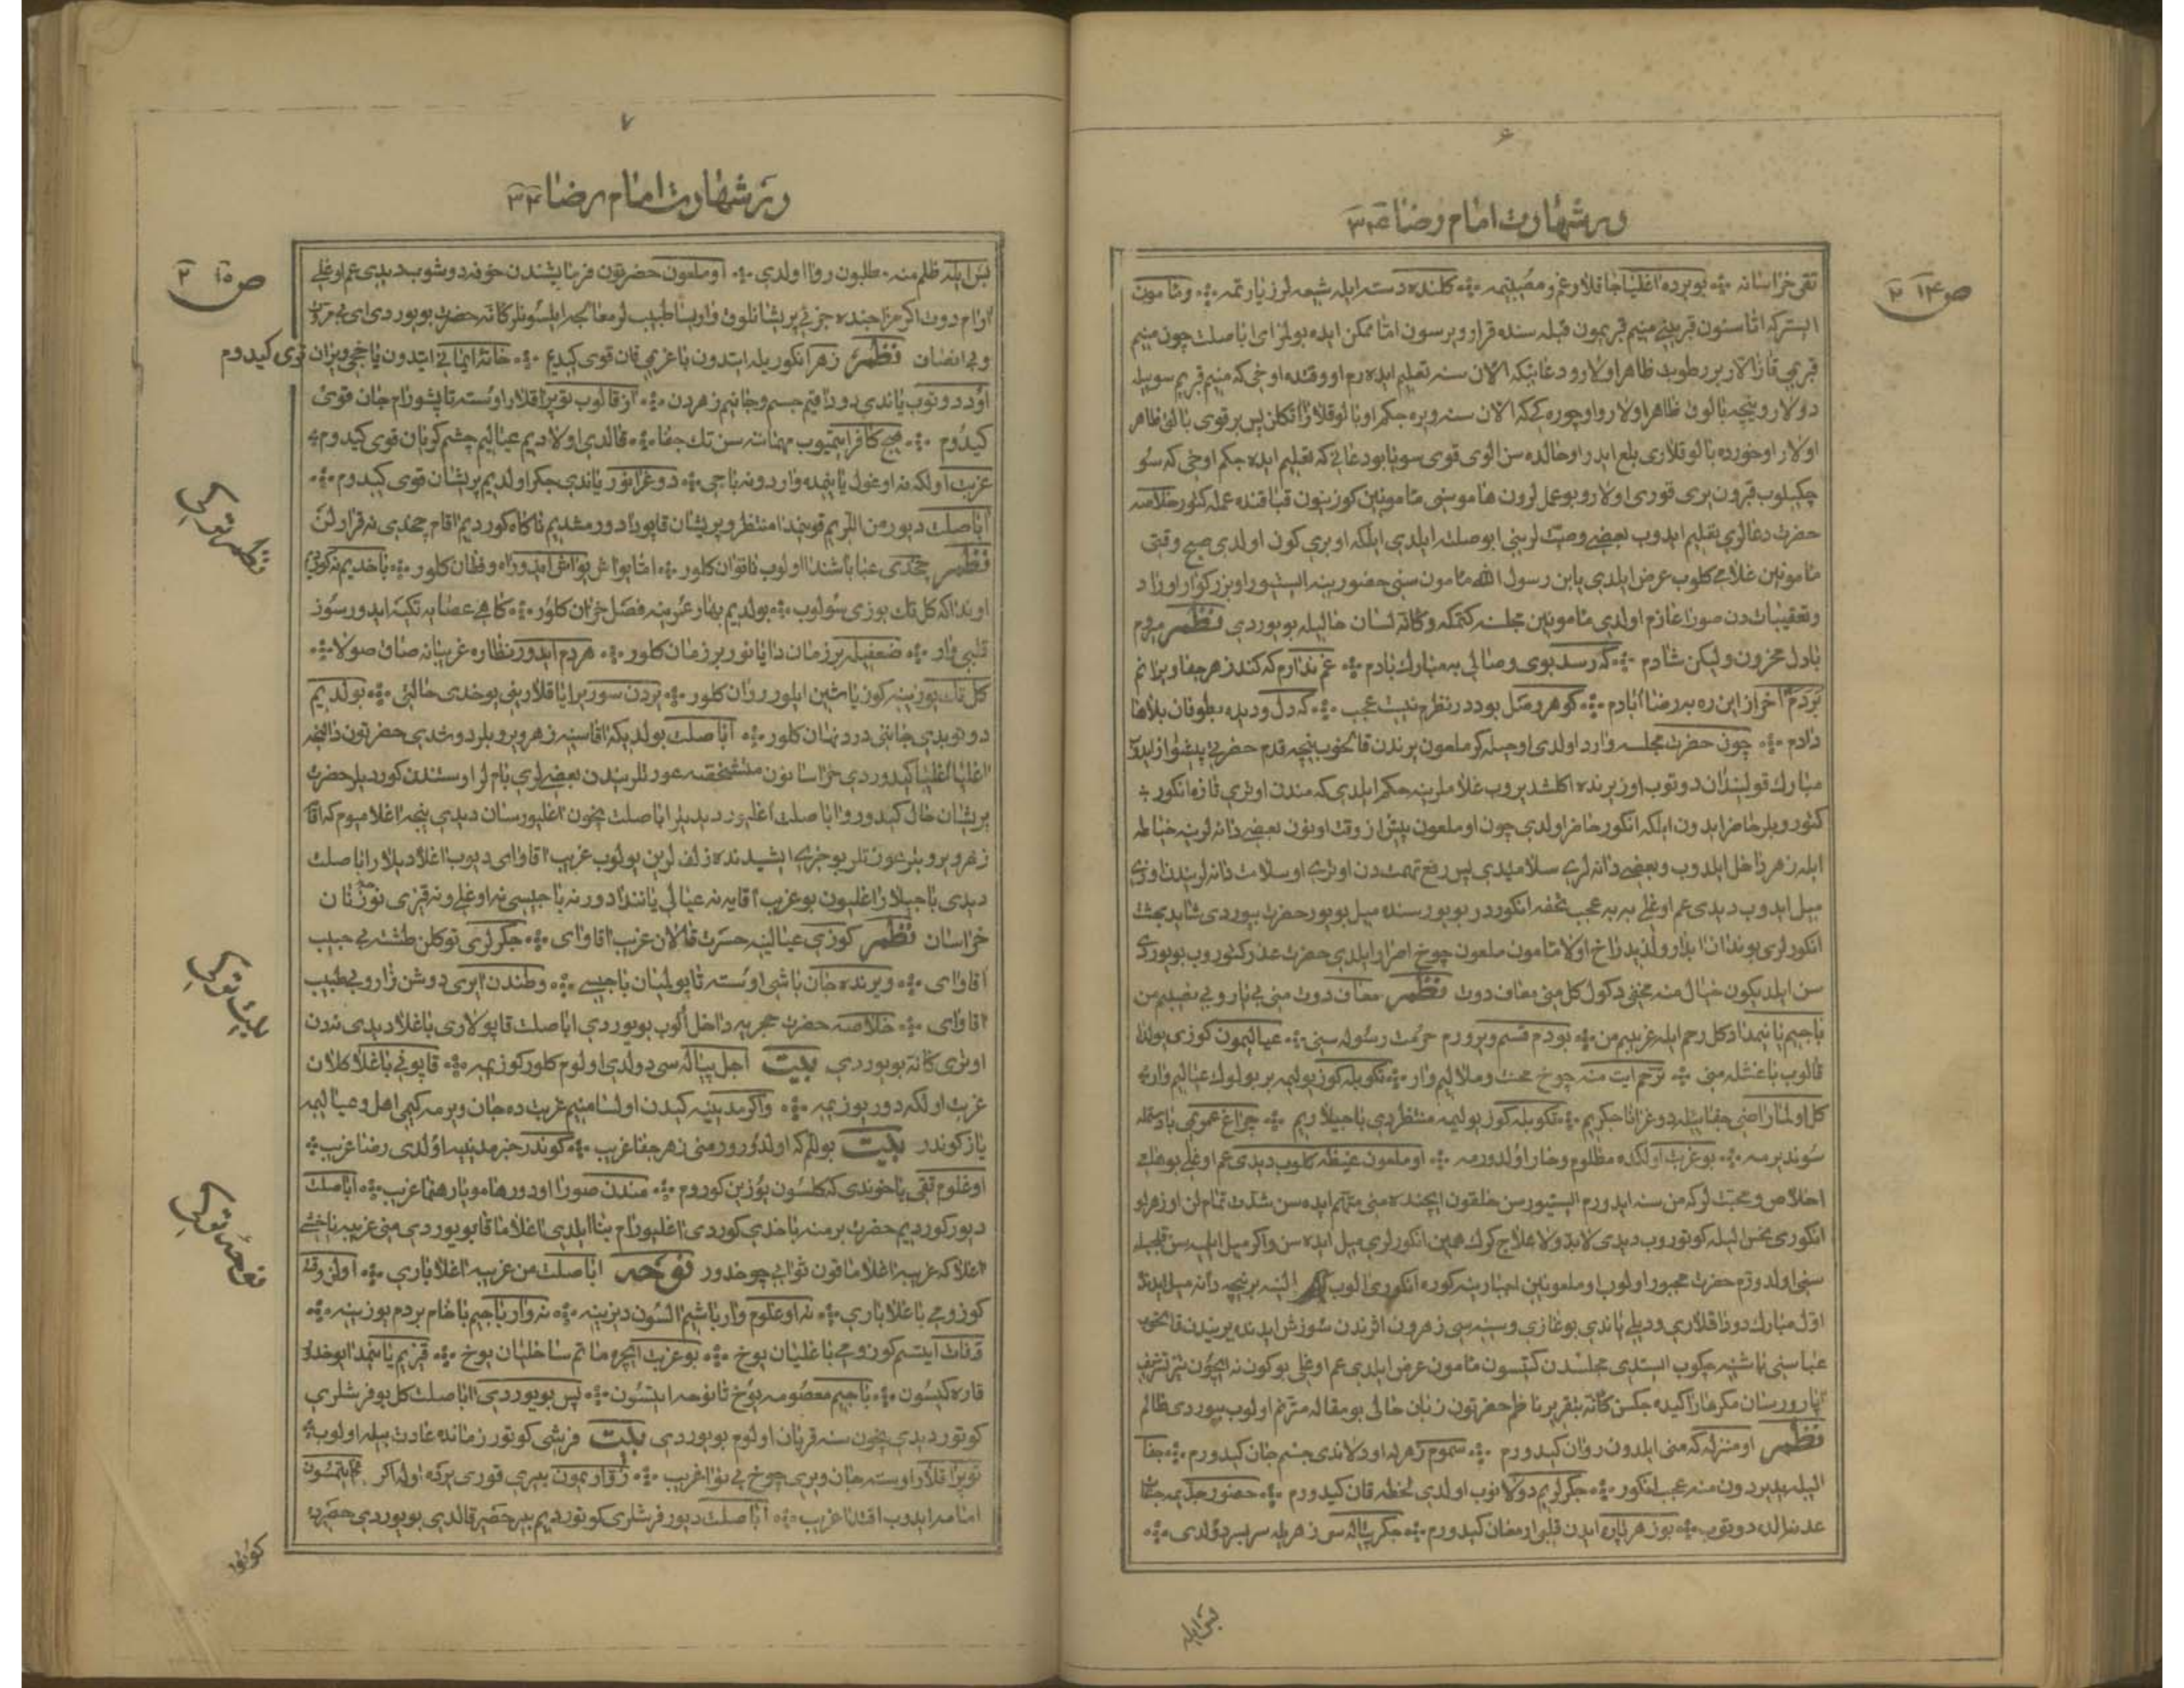 ۶
در شهادت امام رضا ۳۴
ص ۱۴ ۲
تقی خراسانه بویرده اغلیا جاقلار غم و مصیبتیمه کلنده دسته ایله شیعه لر زیارتمه و مامون
ایستر که اتاسنون قبرینی منیم قبریمون قبله سنده قرار ویرسون اما ممکن ایده بولمز ای اباصلت چون منیم
قبریمی قازالار بر رطوبت ظاهر اولارو دعائیکه الان سنه تعلیم ایده رم او وقتده اوخی که منیم قبریم سویله
دولار و نیچه بالوق ظاهر اولار و اوچوره کی که الان سنه ویره جکم او بالوقلارا توکلن پس بر قوی بالوق ظاهر
اولار او خورده بالوقلاری بلع ایدر او حالده سن الوی قوی سویا بو دعانی که تعلیم ایده جکم اوخی که سو
چکیلوب قبرون یری قوری اولار و بو عمللرون هاموسنی مامونین کوزینون قباقنده عمله کتور خلاصه
حضرت دعالری تعلیم ایدوب بعضی وصیت لرینی ابوصلته ایلدی ایلکه او بری کون اولدی صبح وقتی
مامونین غلامی کلوب عرض ایلدی یابن رسول الله مامون سنی حضورینه ایستیور او بزرکوار اوراد
و تعقیبات دن صورا عازم اولدی مامونین مجلسنه کتمکه و کانه لسان حالیله بویوردی نظم میروم
بادل محزون و لیکن شادم که رسد بوی وصالی به مبارک بادم غم ندارم که کند زهر جفا ویرانم
بردم اخر از این ره به رضا ابادم کوهر وصل بود در نظرم نیست عجب که دل و دیده بطوفان بلاها
دادم چون حضرت مجلسه وارد اولدی او حیله کر ملعون یرندن قالخوب نیچه قدم حضرتی پیشواز ایدوب
مبارک قولیندان دوتوب اوز یرنده اکلشدیروب غلاملرینه حکم ایلدی که مندن اوتری تازه انکور
کتورویلر حاضر ایدون ایلکه انکور حاضر اولدی چون او ملعون پیش از وقت اونون بعضی دانه لرینه خیاطه
ایله زهر داخل ایلدوب و بعضی دانه لری سلامتیدی پس رفع تهمت دن اوتری او سلامت دانه لریندن اوزی
میل ایدوب دیدی عم اوغلی به به عجب تحفه انکوردر بویور سنده میل بویور حضرت بیوردی شاید بهشت
انکورلری بوندان ابدار و لذیذراخ اولا مامون ملعون چوخ اصرار ایلدی حضرت عذر کتوروب بویوردی
سن ایلدیکون خیال منه مخفی دکول کل منی معاف دوت نظم معاف دوت منی بی یار و بی نصیبم من
باجیم یانیمدا دکل رحم ایله غریبم من بودم قسم ویرورم حرمت رسوله سنی عیالیمون کوزی یولدا
قالوب باغشله منی ترحم ایت منه چوخ محنت و ملالیم وار تکوبله کوز یولیمه بر بولوک عیالیم وار
کل اولما راضی جفایله دوغرانا جکریم تکوبله کوز یولیمه منتظردی باجیلاریم چراغ عمریمی باد ستمله
سوندیرمه بو غربت اولکده مظلوم و خار اولدورمه او ملعون غیظه کلوب دیدی عم اوغلی بو خلقه
اخلاص و محبت لر که من سنه ایدورم ایستیورسن خلقون ایچنده منی متهم ایده سن شدت تمام لن او زهرلو
انکوری نحس الیله کوتوروب دیدی لابد و لا علاج کرک همین انکورلری میل ایده سن و اکر میل ایلمسن
سنی اولدورم حضرت مجبور اولوب او ملعونین اجبارینه کوره انکوری الوب برنیچه دانه میل ایدنده
اول مبارک دوداقلاری و دیلی یاندی بوغازی و سینه سی زهرون اثرندن سوزش ایدنده یریندن قالخوب
عباسنی باشینه چکوب ایستدی مجلسدن کیتسون مامون عرض ایلدی عم اوغلی بو کون نه ایچون تیز تشریف
اپارورسان مکر هارا کیده جکسن کانه بتقریر ناظم حضرتون زبان حالی بو مقاله مترنم اولوب بیوردی ظالم
نظم او منزله که منی ایلدون روان کیدورم سموم زهریله اودلاندی جسم جان کیدورم جفا
الیله یدیردون منه عجب انکور جکرلریم دولانوب اولدی لخطه قان کیدورم حضور جدیمه
عدندالده دوتوب بو زهر پاره ایدن قلبی ارمغان کیدورم جکر پیاله سی زهریله سربسر دولدی
بس ایله
۷
در شهادت امام رضا ۳۴
ص ۱۵ ۲
بس ایله ظلم منه مطلبون روا اولدی او ملعون حضرتون فرمایشندن خوفه دوشوب دیدی عم اوغلی
ارام دوت اکر مزاجنده جزئی پریشانلوق وار بسا طبیب لر معالجه ایلسونلر کانه حضرت بویوردی ای بی مروت
و بی انصاف نظم زهر انکوریله ایتدون باغریمی قان قوی کیدیم خانه ایمانی ایتدون یاخچی ویران قوی کیدوم
اود دوتوب یاندی دوداقیم جسم و جانیم زهردن از قالوب توپراقلار اوسته تاپشورام جان قوی
کیدوم هیچ کافر ایتمیوب مهمانه سن تک جفا قالدی اولادیم عیالیم چشم کریان قوی کیدوم
غربت اولکه نه اوغول یانیمده واردو نه باجی دوغرانور یاندی جکر اولدیم پریشان قوی کیدوم
اباصلت دیور من اللریم قوینیمدا منتظر و پریشان قاپودا دورمشدیم ناکاه کوردیم اقام چخدی نه قرارلن
نظم چخدی عبا باشندا اولوب ناتوان کلور اما یواش یواش ایدور اه و فغان کلور باخدیم نه کوردی
اوندا که کل تک یوزی سولوب بولدیم بهار عمرینه فصل خزان کلور کاهی عصایه تکیه ایدور سوز
قلبی وار ضعفیله بر زمان دایانور بر زمان کلور هردم ایدور نظاره غریبانه صاق صولا
کل تک یوزینه کوز یاشین ایلور روان کلور یردن سورر ایاقلارینی یوخدی حالتی بولدیم
دوتوبدی جانینی درد نهان کلور اباصلت بولدیکه اقاسینه زهر ویروبلر دوشدی حضرتون دالنجه
اغلیا اغلیا کیدوردی خراسانون متشخصه عورتلریندن بعضیلری بام لر اوستندن کوردیلر حضرت
پریشان حال کیدور و اباصلت اغلیور دیدیلر اباصلت نیچون اغلیورسان دیدی نیجه اغلامیوم که اقا
زهر ویروبلر عورتلر بو خبری ایشیدنده زلف لرین یولوب غریب اقا وای دیوب اغلادیلار اباصلت
دیدی باجیلار اغلیون بو غریب اقایه نه عیالی یانندادور نه باجیسی نه اوغلی و نه قیزی
خراسان نظم کوزی عیالینه حسرت قالان غریب اقا وای جکرلری توکلن طشته بی حبیب
اقا وای ویرنده جان باشی اوسته تاپولمیان باجیسی وطندن ایری دوشن زار و بی طبیب
اقا وای خلاصه حضرت حجریه داخل اولوب بویوردی اباصلت قاپولاری باغلا دیدی ندن
اوتری کانه بویوردی بیت اجل پیاله سی دولدی اولوم کلور کوزیمه قاپونی باغلا کلان
غربت اولکه دور یوزیمه و اکر مدینیه کیدن اولسا منیم غربت ده جان ویرمه کیمی اهل و عیالیمه
یاز کوندر بیت بولم که اولدورور منی زهر جفا غریب کوندر خبر مدینیه اولدی رضا غریب
اوغلوم تقی یاخوندی که کلسون یوزین کوروم مندن صورا اودور هامو یا رهنما غریب اباصلت
دیور کوردیم حضرت بر منه باخدی کوردی اغلیورام بنا ایلدی اغلاماقا بویوردی منی غریبه یاخشی
اغلا که غریبه اغلاماقون ثوابی چوخدور نوحه اباصلت من غریبه اغلا باری اولن وقته
کوزومی باغلا باری نه اوغلوم وار باشیم السون دیزینه نه وار باجیم باخام بردم یوزینه
وفات ایتسم کوزومی باغلیان یوخ بو غربت ایچره ماتم ساخلیان یوخ قیزیم یانیمدا یوخدا
قاره کیسون باجیم معصومه یوخ تا نوحه ایتسون پس بویوردی اباصلت کل بو فرشلری
کوتور دیدی نیچون سنه قربان اولوم بویوردی بیت فرشی کوتور زمانده عادت بیله اولوب
توپراقلار اوسته جان ویری چوخ بی نوا غریب زوارمون بیری قوری یرده اوله اکر غم ایتمسون
امامه ایدوب اقتدا غریب اباصلت دیور فرشلری کوتوردیم بیر حصیر قالدی بویوردی حصیرده
نظم ترکی
بیت ترکی
نوحه ترکی
کوتور